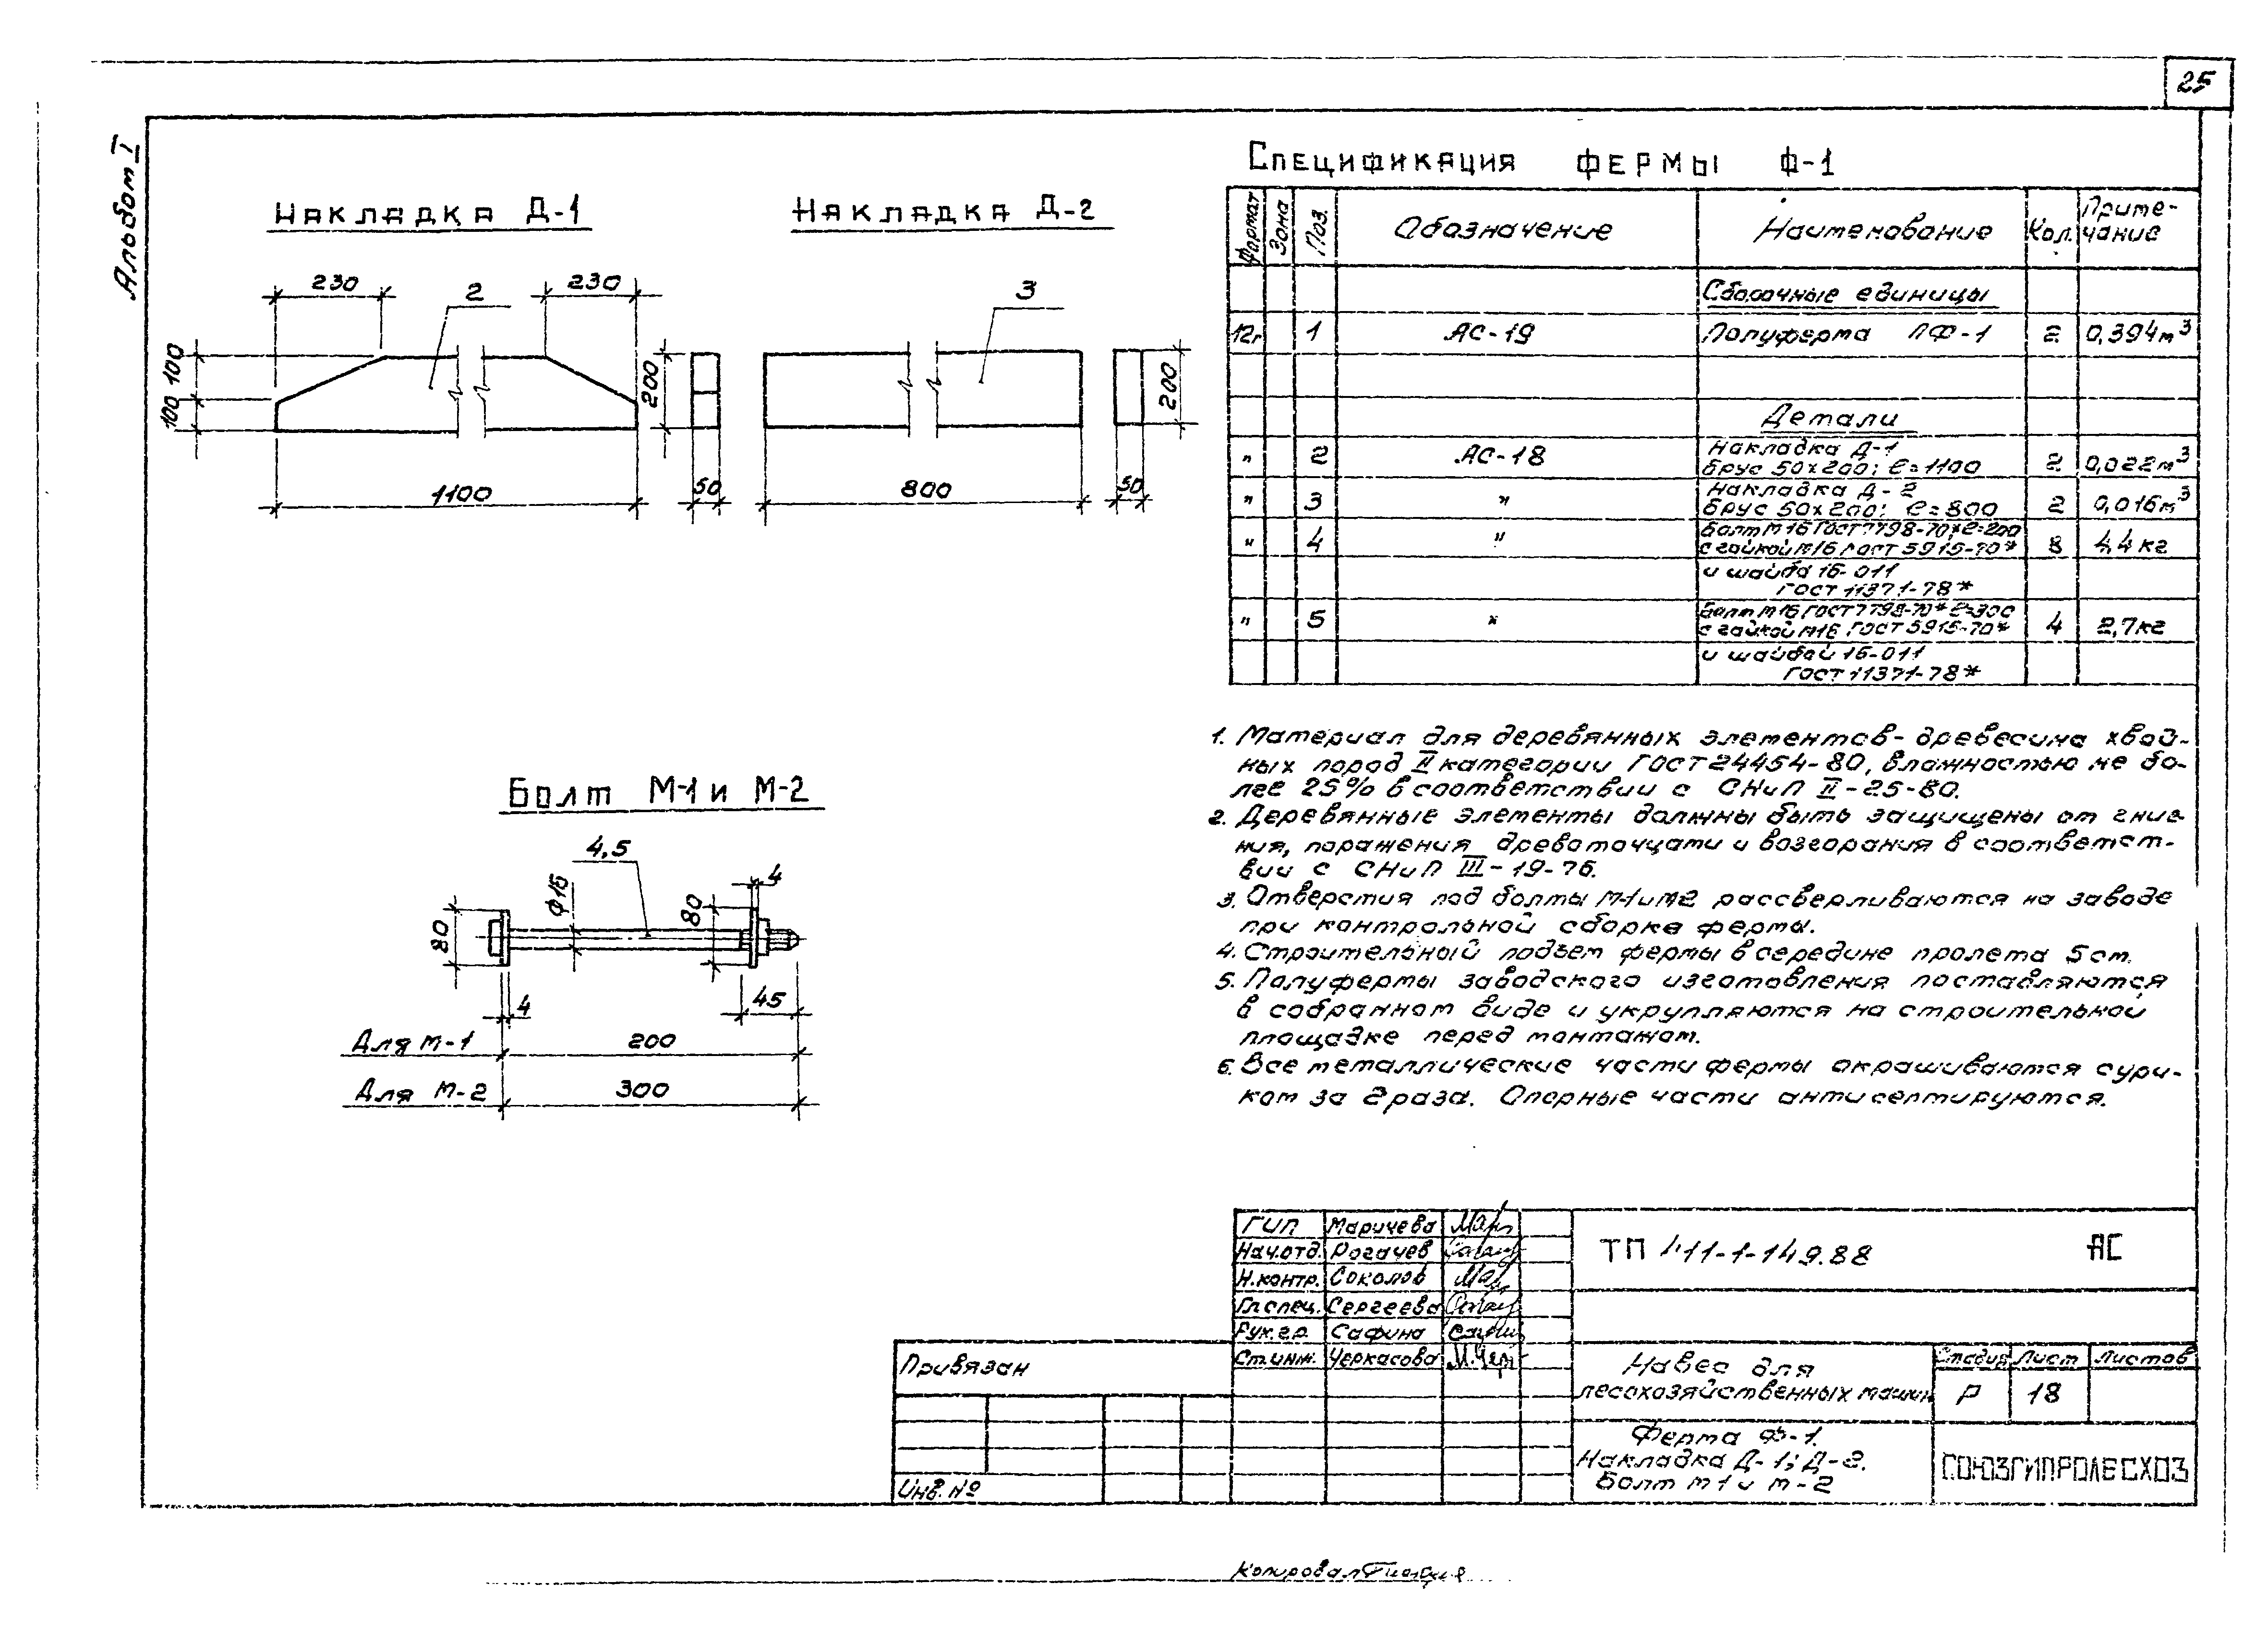 25
Альбом I
Накладка Д-1
230
230
2
100
100
200
1100
50
Накладка Д-2
3
200
800
50
Болт М-1 и М-2
4,5
ф16
80
80
4
4
45
Для М-1 200
Для М-2 300
Спецификация фермы Ф-1
Формат Зона Поз. Обозначение Наименование Кол. Приме-
чание
Сборочные единицы
12г 1 АС-19 Полуферма ПФ-1 2 0,394м³
Детали
" 2 АС-18 Накладка Д-1
Брус 50х200; ℓ=1100 2 0,022м³
" 3 " Накладка Д-2
Брус 50х200; ℓ=800 2 0,016м³
" 4 " Болт М16 ГОСТ 7798-70* ℓ=200
с гайкой М16 ГОСТ 5915-70* 8 4,4кг
и шайба 16-011
ГОСТ 11371-78*
" 5 " Болт М16 ГОСТ 7798-70* ℓ=300
с гайкой М16 ГОСТ 5915-70* 4 2,7кг
и шайбой 16-011
ГОСТ 11371-78*
1. Материал для деревянных элементов- древесина хвой-
ных пород II категории ГОСТ 24454-80, влажностью не бо-
лее 25% в соответствии с СНиП II-25-80.
2. Деревянные элементы должны быть защищены от гние-
ния, поражения древоточцами и возгорания в соответст-
вии с СНиП III-19-76.
3. Отверстия под болты М-1 и М2 рассверливаются на заводе
при контрольной сборке фермы.
4. Строительный подъем фермы в середине пролета 5см.
5. Полуфермы заводского изготовления поставляются
в собранном виде и укрупляются на строительной
площадке перед монтажом.
6. Все металлические части фермы окрашиваются сури-
ком за 2 раза. Опорные части антисептируются.
ГИП Маричева
Нач.отд. Рогачев
Н.контр. Соколов
Гл.спец. Сергеева
Рук.гр. Сафина
Ст.инж. Черкасова М.Чер
ТП 411-1-149.88 АС
Привязан
Инв. №
Навес для
лесохозяйственных машин
Стадия Лист Листов
Р 18
Ферма Ф-1.
Накладка Д-1; Д-2.
Болт М1 и М-2
СОЮЗГИПРОЛЕСХОЗ
Копировал